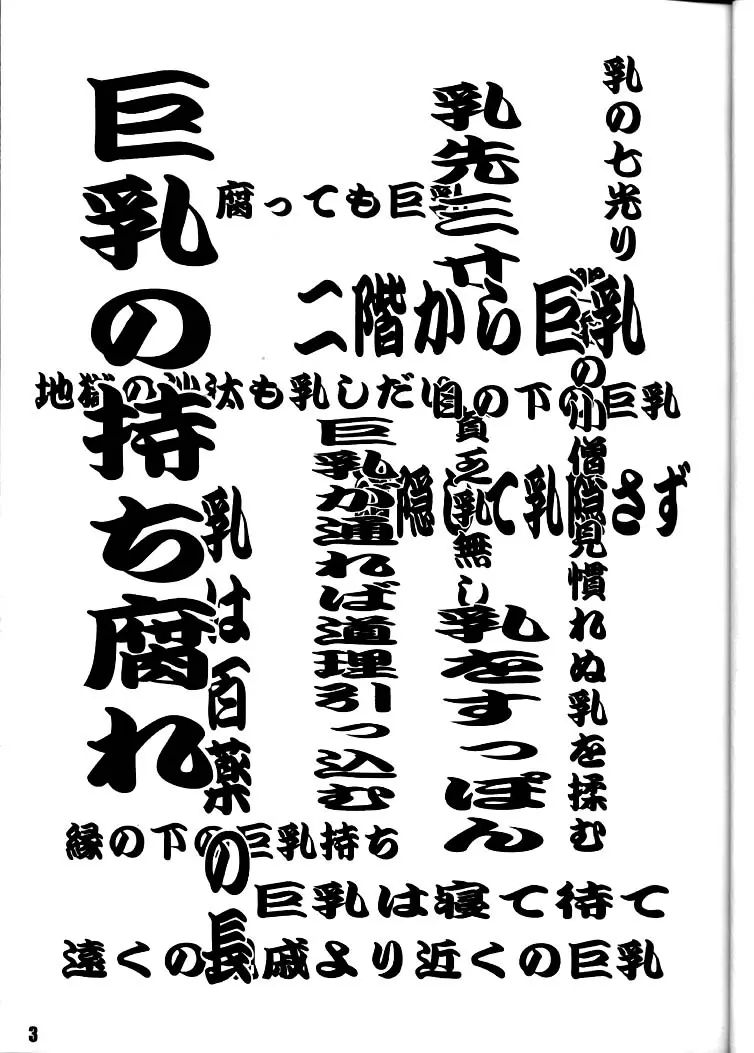 乳の七光り
乳先三寸
腐っても巨乳
二階から巨乳
地獄の沙汰も乳しだい
目の下の巨乳
隠して乳隠さず
の小僧見慣れぬ乳を揉む
貧乏乳無し
乳をすっぽん
巨乳が通れば道理引っ込む
巨乳の持ち腐れ
乳は百薬の長
縁の下の巨乳持ち
巨乳は寝て待て
遠くの親戚より近くの巨乳
3